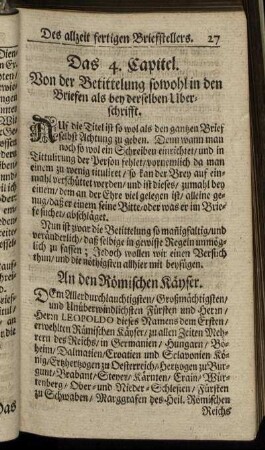 Des allzeit fertigen Briefstellers. 27
Das 4. Capitel.
Von der Betittelung sowohl in den
Briefen als bey derselben Uber-
schrifft.
AUf die Titel ist so wol als den gantzen Brief
selbst Achtung zu geben. Denn wann man
noch so wol ein Schreiben einrichtet/ und in
Titulirung der Person fehlet/ vornemlich da man
einem zu wenig tituliret / so kan der Brey auf ein-
mahl verschüttet worden/ und ist dieses/ zumahl bey
einem/ dem an der Ehre viel gelegen ist/ alleine ge-
nug/ daß er einem seine Bitte/ oder was er im Brie-
fe suchet/ abschläget.
Nun ist zwar die Betittelung so manigfaltig/und
veränderlich/ daß selbige in gewisse Regeln unmög-
lich zu fassen ; Jedoch wollen wir einen Versuch
thun/ und die nötigsten allhier mit beyfügen.
An den Römischen Käyser.
DEm Allerdurchlauchtigsten/ Großmächtigsten/
und Unüberwindlichsten Fürsten und Herrn/
Herrn LEOPOLDO dieses Namens dem Ersten/
erwehlten Römischen Käyser/ zu allen Zeiten Meh-
rern des Reichs/ in Germanien/ Hungarn/ Bö-
heim/ Dalmatien/ Croatien und Sclavonien Kö-
nig/ Ertzhertzogen zu Oesterreich/ Hertzogen zu Bur-
gund/ Brabant/ Steyer/ Kärnten/ Crain/ Wür-
tenberg/ Ober- und Nieder-Schlesien/ Fürsten
zu Schwaben/ Marggrafen des Heil. Römischen
Reichs